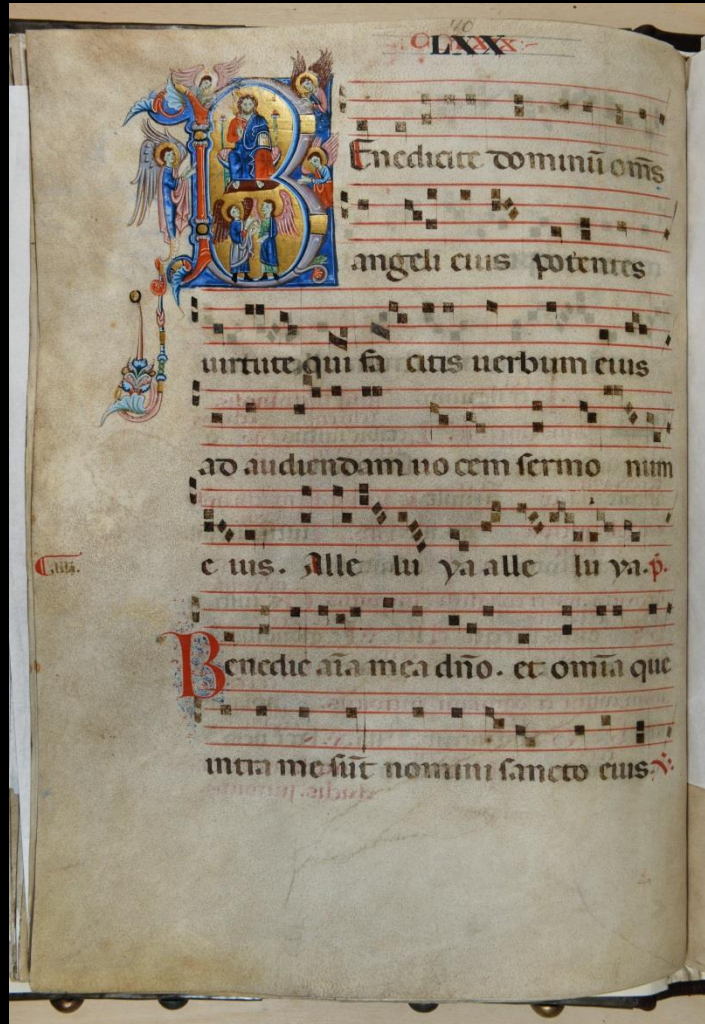 LXXX
BEnedicite dominū om̄s
angeli eius potentes
uirtute qui fa citis uerbum eius
ad audiendam uo cem sermo num
e ius. Alle lu ya alle lu ya. p̄.
Benedic aīa mea dn̄o. et omīa que
intra me sūt nomini sancto eius. ℣.